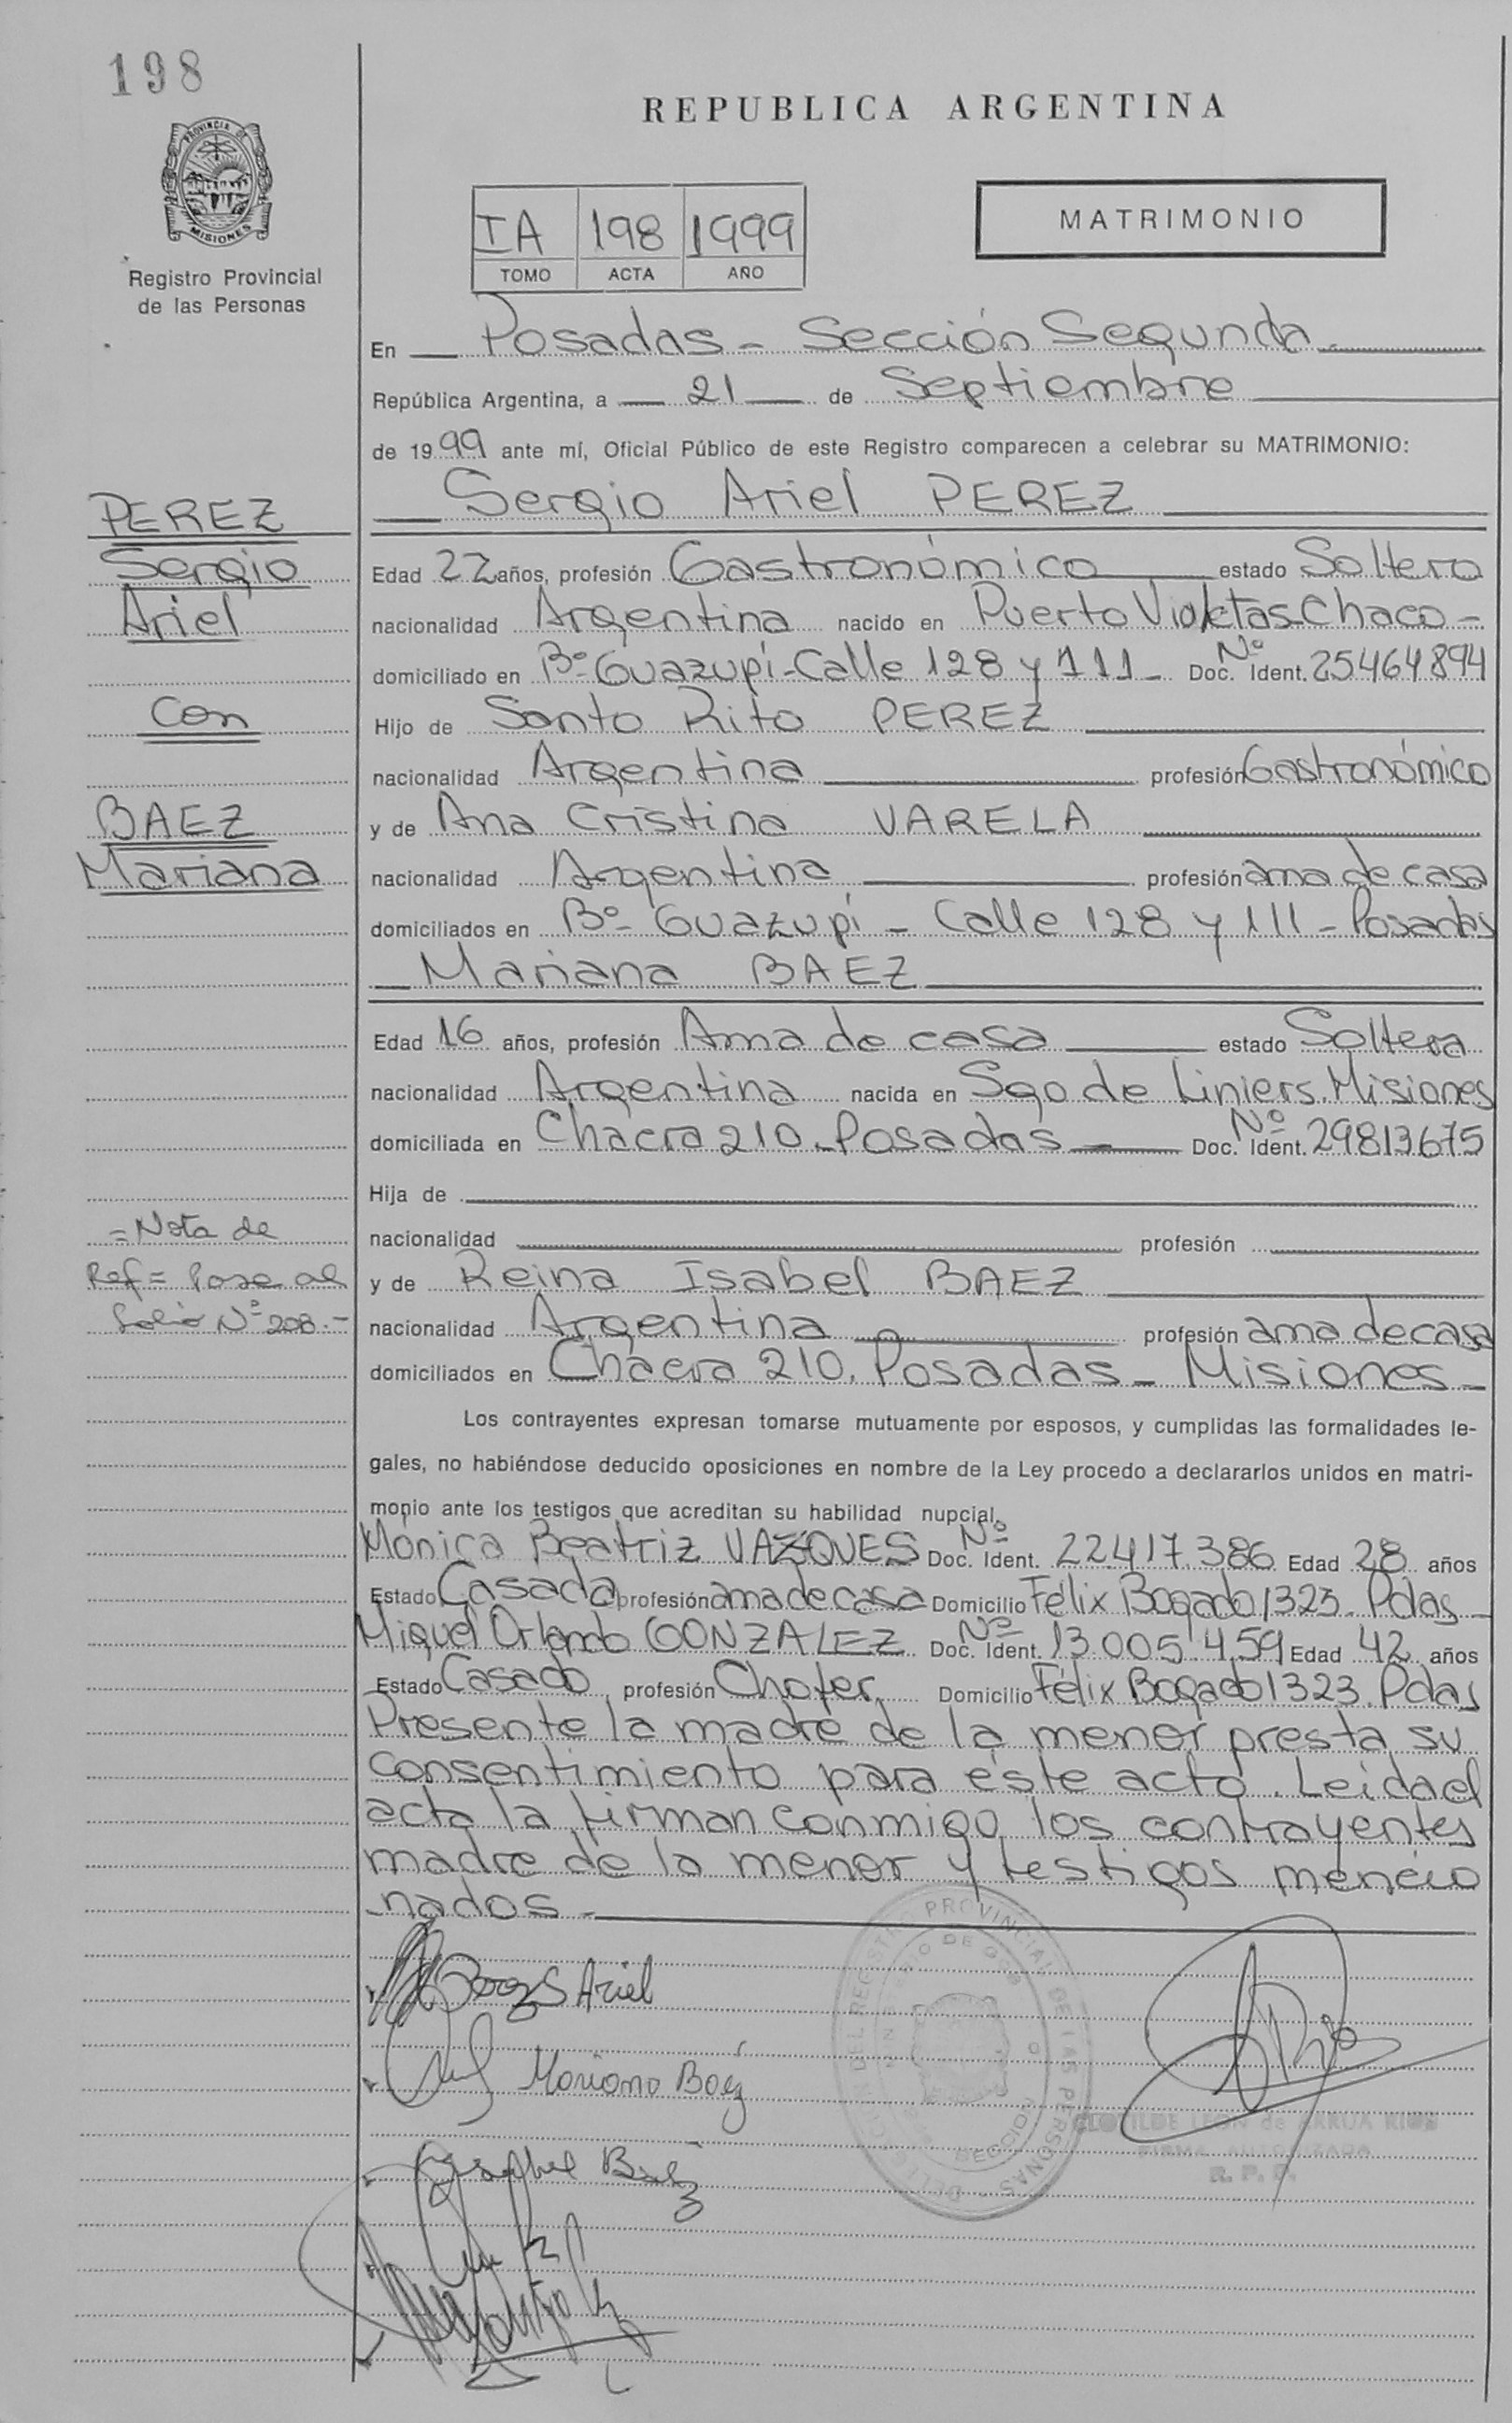 198
PROVINCIA DE
MISIONES
Registro Provincial
de las Personas
REPUBLICA ARGENTINA
IA 198 1999
TOMO ACTA AÑO
MATRIMONIO
En Posadas - Sección Segunda
República Argentina, a 21 de Septiembre
de 1999 ante mí, Oficial Público de este Registro comparecen a celebrar su MATRIMONIO:
Sergio Ariel PEREZ
PEREZ
Sergio
Ariel
Con
BAEZ
Mariana
Edad 22 años, profesión Gastronómico estado Soltero
nacionalidad Argentina nacido en Puerto Violetas-Chaco -
domiciliado en Bº Guazupí - Calle 128 y 111 - Doc. Nº Ident. 25464894
Hijo de Santo Rito PEREZ
nacionalidad Argentina profesión Gastronómico
y de Ana Cristina VARELA
nacionalidad Argentina profesión ama de casa
domiciliados en Bº Guazupí - Calle 128 y 111 - Posadas
Mariana BAEZ
Edad 16 años, profesión Ama de casa estado Soltera
nacionalidad Argentina nacida en Sgo de Liniers. Misiones
domiciliada en Chacra 210. Posadas - Doc. Nº Ident. 29813675
Hija de
nacionalidad profesión
y de Reina Isabel BAEZ
nacionalidad Argentina profesión ama de casa
domiciliados en Chacra 210. Posadas - Misiones -
= Nota de
Ref = Pase al
folio Nº 208.-
Los contrayentes expresan tomarse mutuamente por esposos, y cumplidas las formalidades le-
gales, no habiéndose deducido oposiciones en nombre de la Ley procedo a declararlos unidos en matri-
monio ante los testigos que acreditan su habilidad nupcial.
Mónica Beatriz VAZQUES Doc. Nº Ident. 22.417.386 Edad 28 años
Estado Casada profesión ama de casa Domicilio Félix Bogado 1323. Pdas -
Miguel Orlando GONZALEZ Doc. Nº Ident. 13.005.459 Edad 42 años
Estado Casado profesión Chofer Domicilio Félix Bogado 1323. Pdas
Presente la madre de la menor presta su
consentimiento para éste acto. Leida el
acta la firman conmigo los contrayentes
madre de la menor y testigos mencio
nados -
Ariel
Mariana Baez
Baez
REGISTRO PROVINCIAL DE LAS PERSONAS
CLOTILDE LEON de ARRUA RIOS
FIRMA AUTORIZADA
R. P. P.